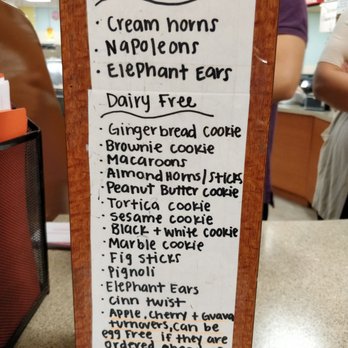 · Cream horns
· Napoleons
· Elephant Ears
Dairy Free
· Gingerbread cookie
· Brownie cookie
· Macaroons
· Almond Horns/Sticks
· Peanut Butter cookie
· Tortica cookie
· Sesame cookie
· Black + White cookie
· Marble cookie
· Fig Sticks
· Pignoli
· Elephant Ears
· Cinn twist
· Apple, Cherry + Guava
turnovers, can be
egg free if they are
ordered